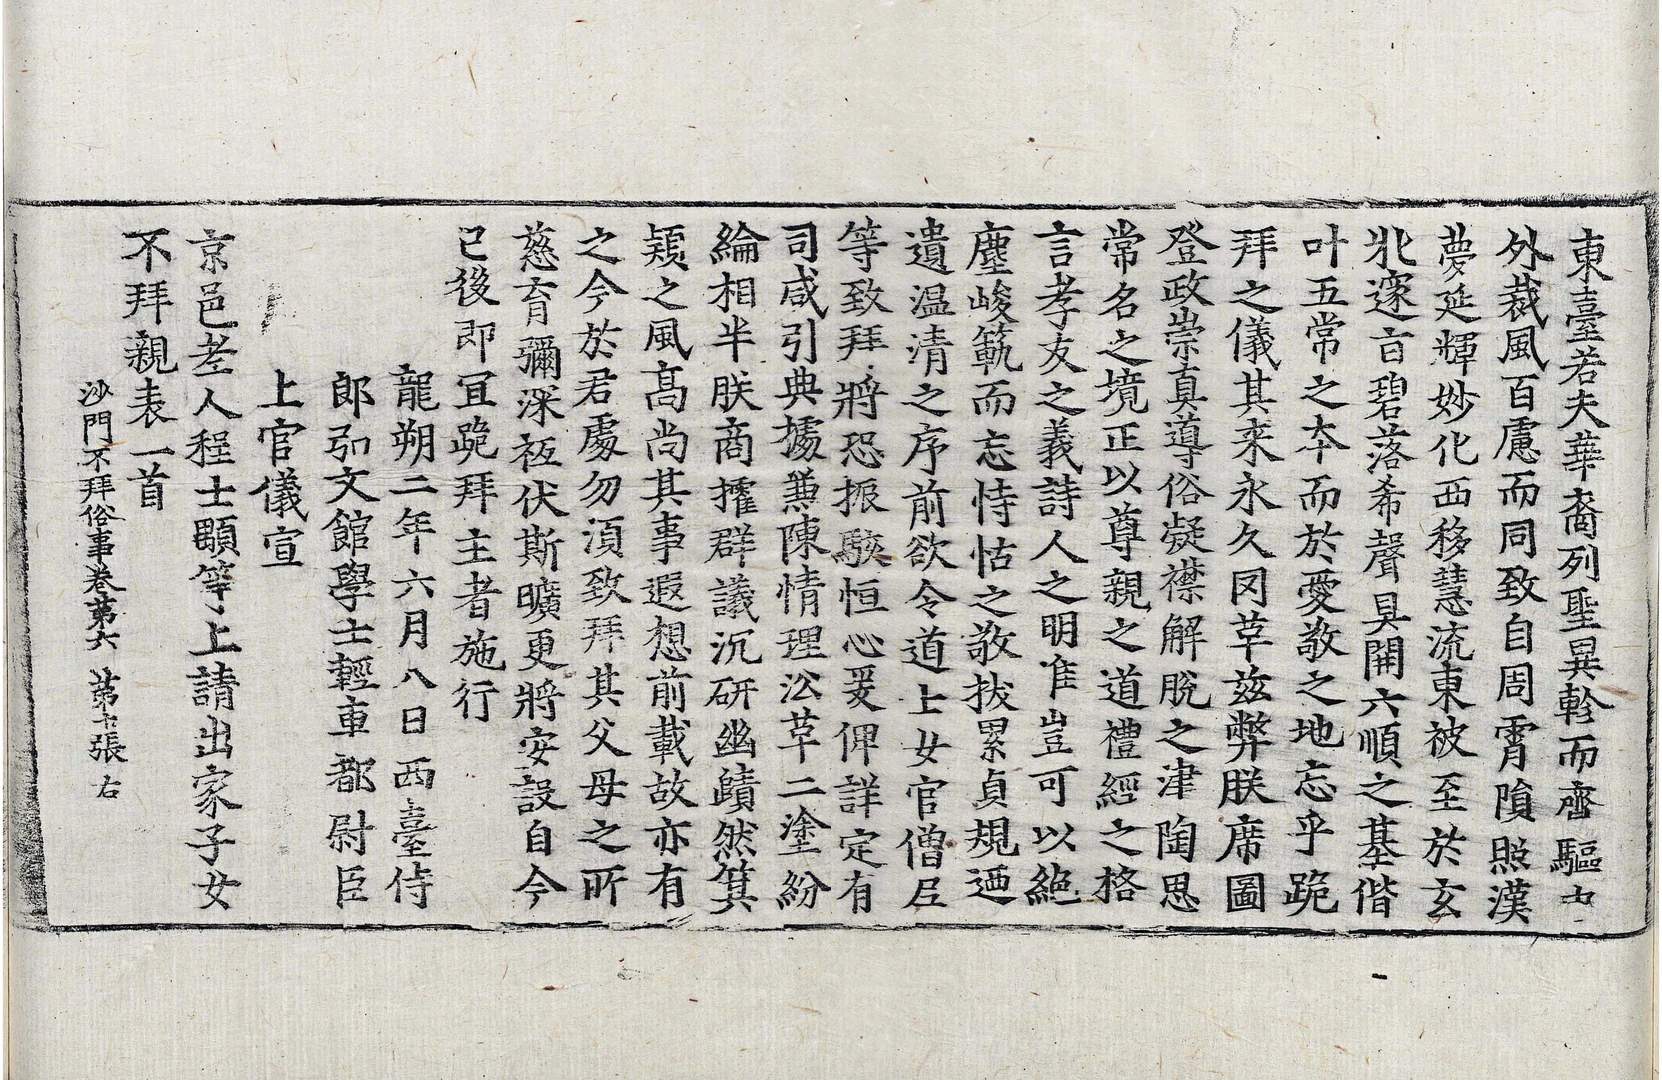 東臺若夫華裔列聖異軫而齊驅中
外裁風百慮而同致自周霄隕照漢
夢延輝妙化西移慧流東被至於玄
牝邃旨碧落希聲具開六順之基偕
叶五常之本而於愛敬之地忘乎跪
拜之儀其來永久罔革茲弊朕席圖
登政崇真導俗凝襟解脫之津陶思
常名之境正以尊親之道禮經之格
言孝友之義詩人之明准豈可以絶
塵峻軌而忘恃怙之敬拔累貞規迺
遺温清之序前欲令道士女官僧尼
等致拜將恐振駭恒心爰俾詳定有
司咸引典據兼陳情理沿革二塗紛
綸相半朕商搉群議沉研幽賾然箕
潁之風高尚其事遐想前載故亦有
之今於君處勿須致拜其父母之所
慈育彌深祗伏斯曠更將安設自今
已後即宜跪拜主者施行
龍朔二年六月八日西臺侍
郎弘文館學士輕車都尉臣
上官儀宣
京邑老人程士顒等上請出家子女
不拜親表一首
沙門不拜俗事卷第六 第七張 右